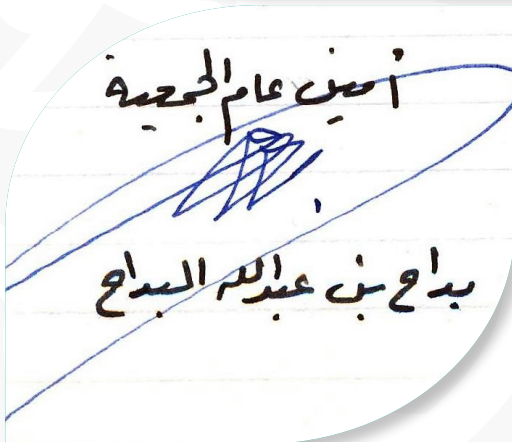 أمين عام الجمعية
بداح بن عبدالله البداح